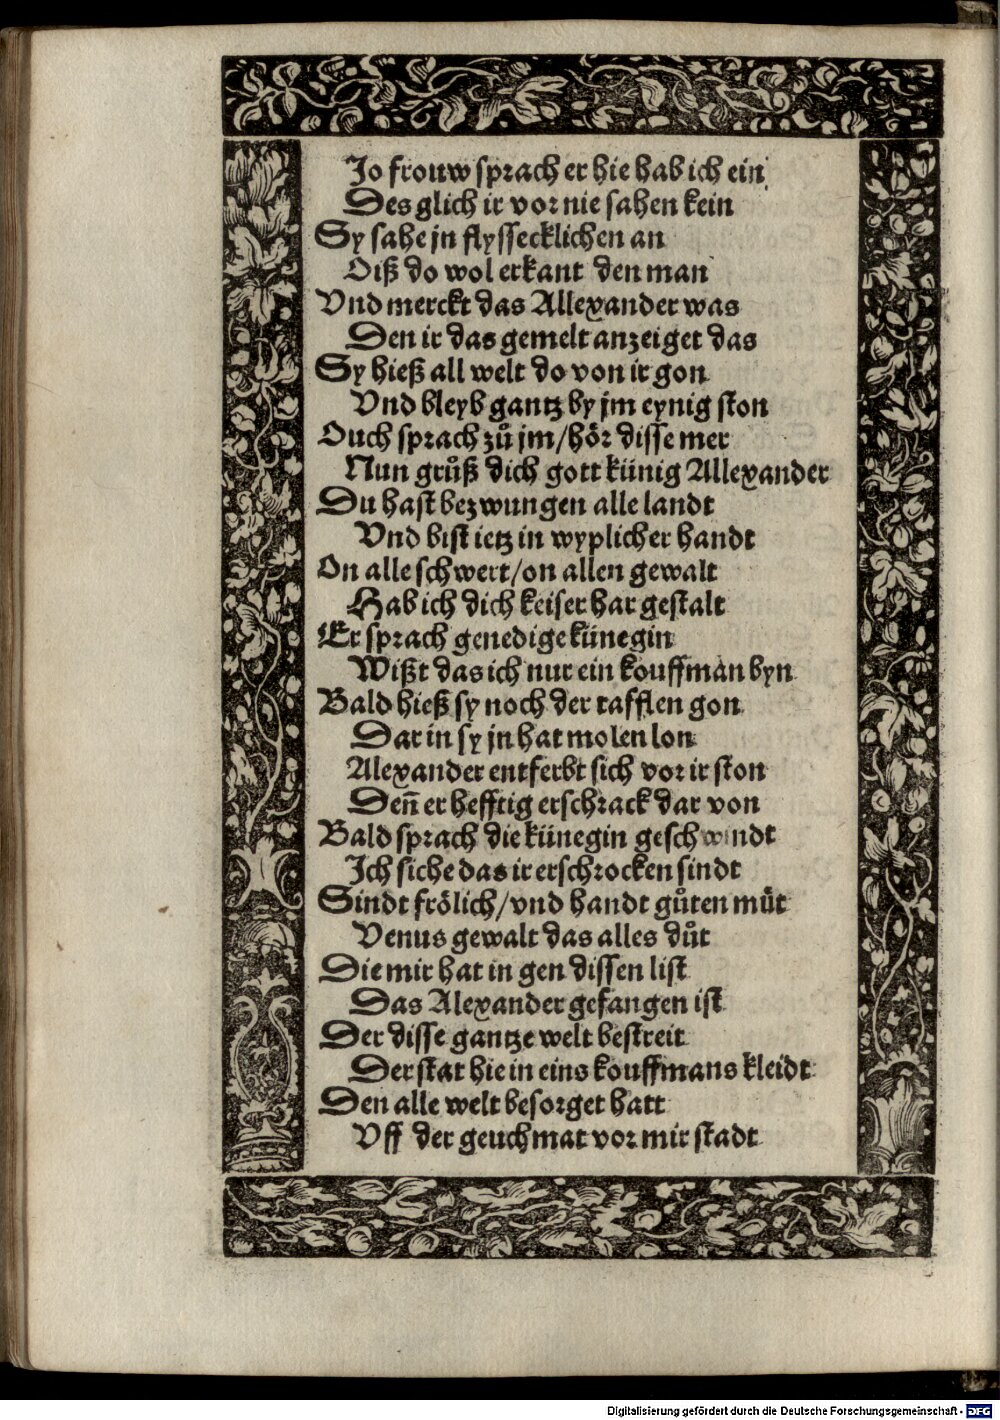 Jo frouw sprach er hie hab ich ein
Des glich ir vor nie sahen kein
Sy sahe jn flyssecklichen an
Diß do wol erkant den man
Vnd merckt das Allexander was
Den ir das gemelt anzeiget das
Sy hieß all welt do von ir gon
Vnd bleyb gantz by jm eynig ston
Ouch sprach zů jm/hör disse mer
Nun grůß dich gott künig Allexander
Du hast bezwungen alle landt
Vnd bist ietz in wyplicher handt
On alle schwert/on allen gewalt
Hab ich dich keiser har gestalt
Er sprach genedige künegin
Wißt das ich nur ein kouffman byn
Bald hieß sy noch der tafflen gon
Dar in sy jn hat molen lon
Alexander entferbt sich vor ir ston
Deñ er hefftig erschrack dar von
Bald sprach die künegin geschwindt
Ich siche das ir erschrocken sindt
Sindt frölich/vnd handt gůten můt
Venus gewalt das alles důt
Die mir hat in gen dissen list
Das Alexander gefangen ist
Der disse gantze welt bestreit
Der stat hie in eins kouffmans kleidt
Den alle welt besorget hatt
Vff der geuchmat vor mir stadt
Digitalisierung gefördert durch die Deutsche Forschungsgemeinschaft - DFG